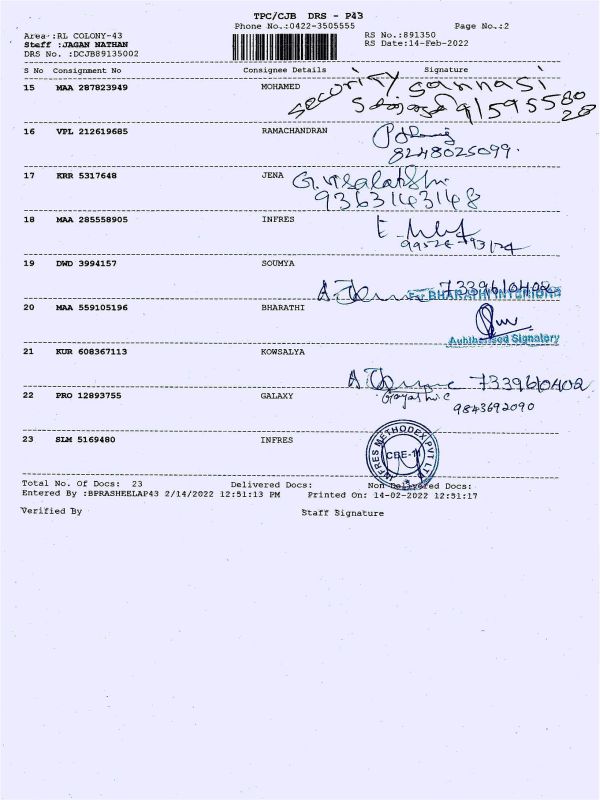 TPC/CJB DRS - P43
Phone No.:0422-3505555 Page No.:2
Area :RL COLONY-43 RS No.:891350
Staff :JAGAN NATHAN RS Date:14-Feb-2022
DRS No. :DCJB89135002
S No Consignment No Consignee Details Signature
15 MAA 287823949 MOHAMED
security sannasi
16 VPL 212619685 RAMACHANDRAN
8248025099.
17 KRR 5317648 JENA G.Visalatshi
9363143148
18 MAA 285558905 INFRES
19 DWD 3994157 SOUMYA
7339610402
For BHARATHI INTERIORS
20 MAA 559105196 BHARATHI
Authorised Signatory
21 KUR 608367113 KOWSALYA
7339610402
22 PRO 12893755 GALAXY Gayathri.C
9843692090
23 SLM 5169480 INFRES
INFRES METHODEX PVT LTD
CBE-11
Total No. Of Docs: 23 Delivered Docs: Non Delivered Docs:
Entered By :BPRASHEELAP43 2/14/2022 12:51:13 PM Printed On: 14-02-2022 12:51:17
Verified By Staff Signature